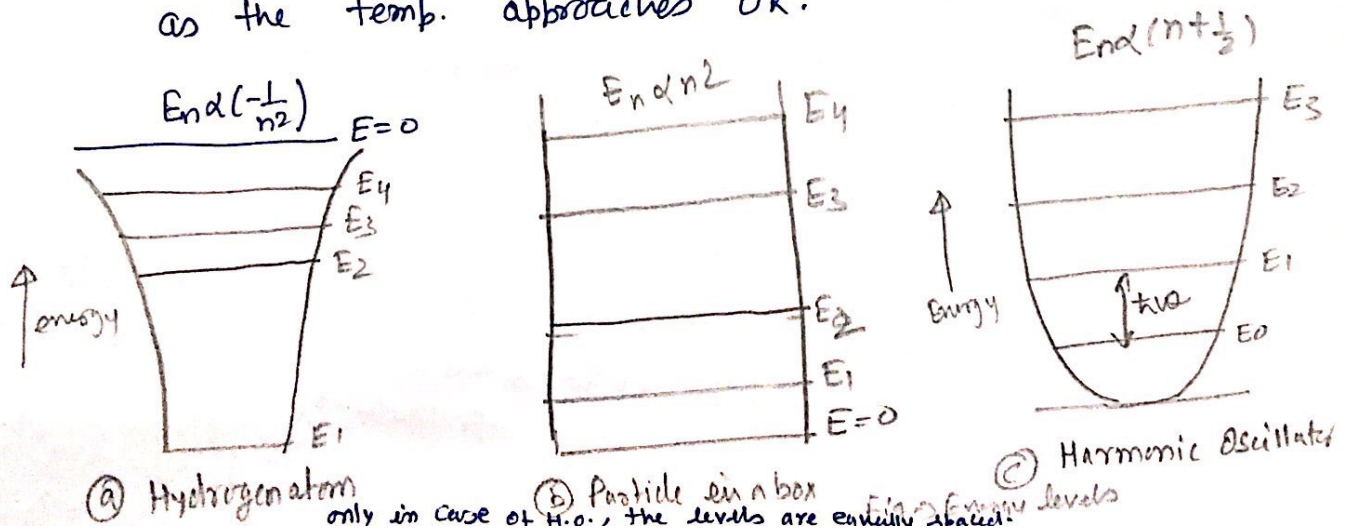 as the temp. approaches 0K.
En α (-1/n2)
E=0
E4
E3
E2
energy
E1
(a) Hydrogen atom
En α n2
E4
E3
E2
E1
E=0
(b) Particle in a box
En α (n+1/2)
E3
E2
E1
E0
Energy
(c) Harmonic Oscillator
Fig → Energy levels
only in case of H.O., the levels are equally spaced.